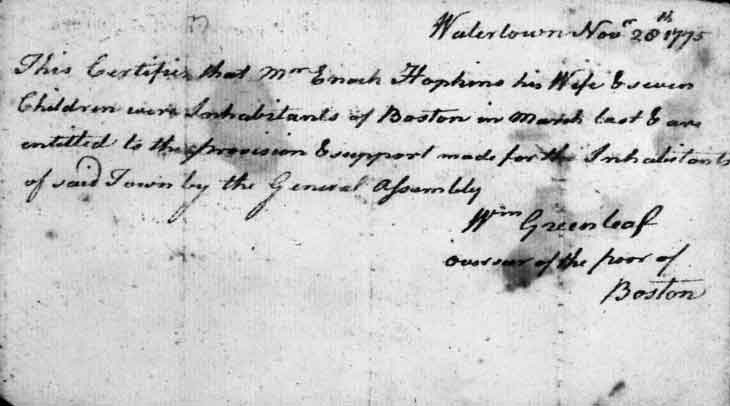 Watertown Novr 28th 1775
This Certifies that Mr Enoch Hopkins his Wife & seven
Children were Inhabitants of Boston in March last & are
entitled to the provision & support made for the Inhabitants
of said Town by the General Assembly
Wm Greenleaf
overseer of the poor of
Boston